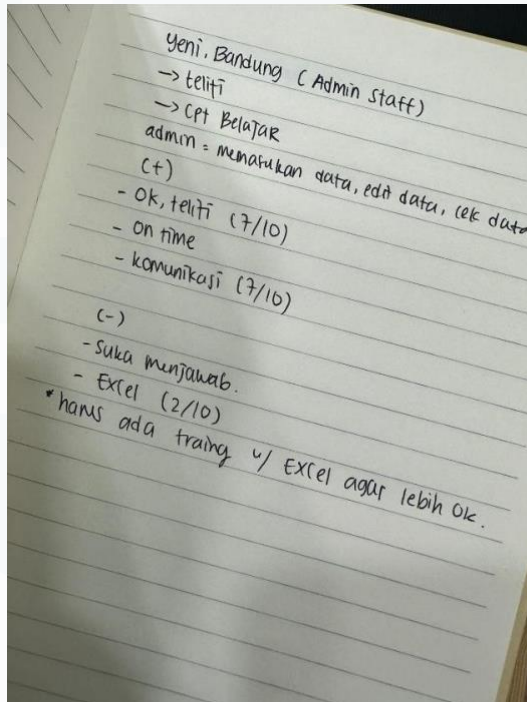 Yeni, Bandung (Admin Staff)
→ teliti
→ Cpt Belajar
admin = memasukan data, edit data, cek data
(+)
- Ok, teliti (7/10)
- On time
- komunikasi (7/10)
(-)
- Suka menjawab.
- Excel (2/10)
* harus ada traing u/ Excel agar lebih ok.